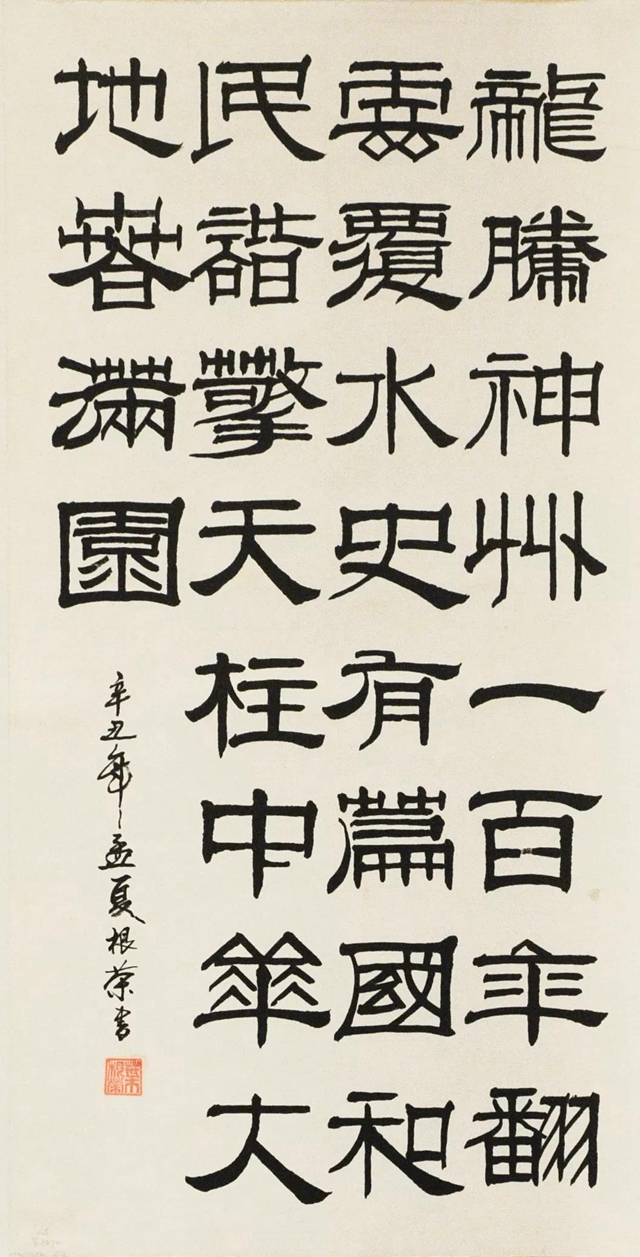 龍騰神州一百年翻
雲覆水史有篇國和
民諧擎天柱中華大
地春滿園
辛丑年孟夏根荣书